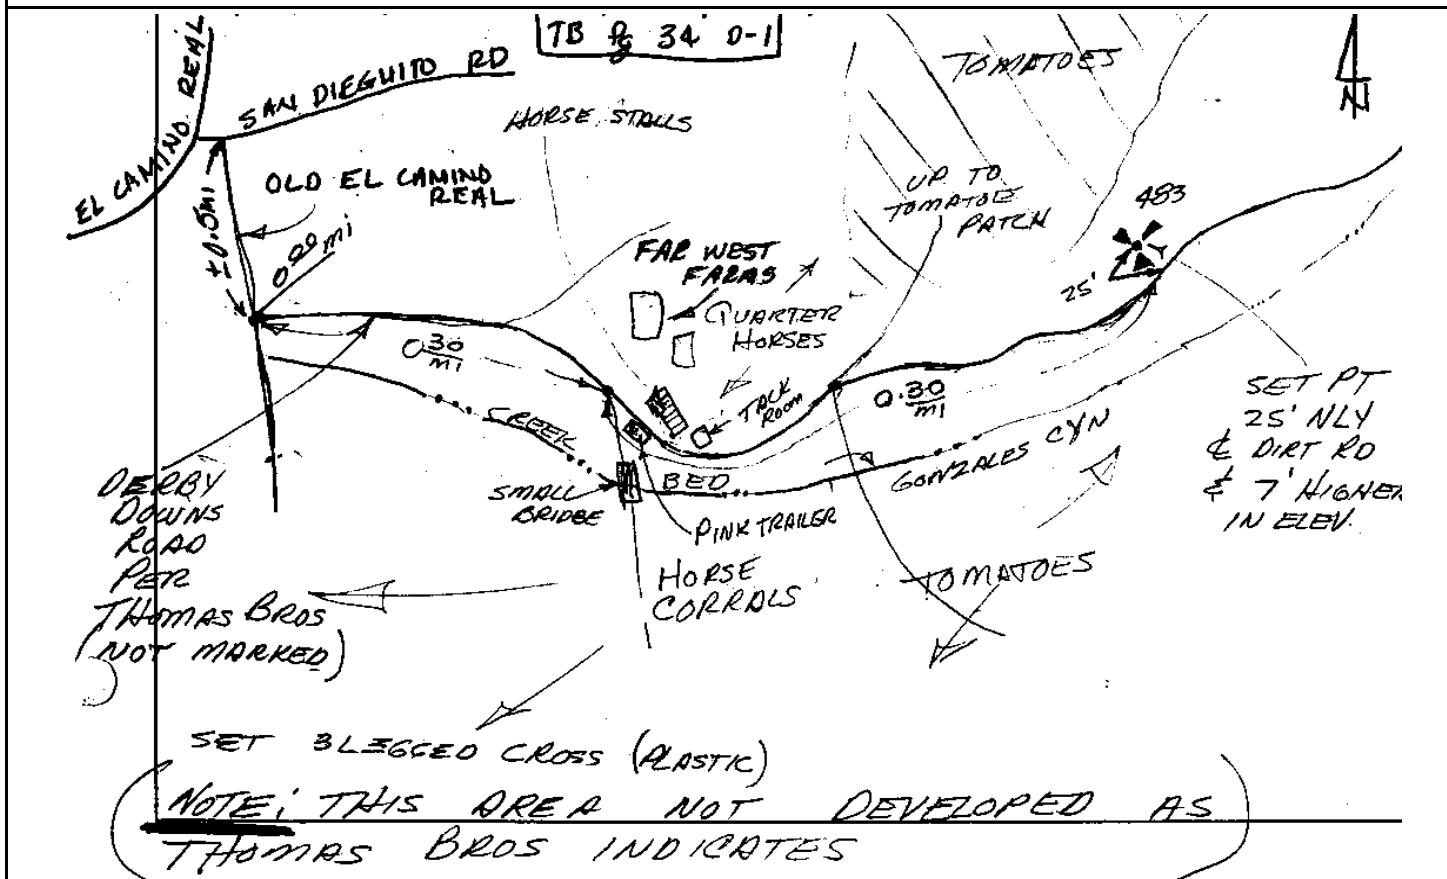 TB Pg 34 D-1
EL CAMINO REAL
SAN DIEGUITO RD
TOMATOES
N
HORSE STALLS
OLD EL CAMINO
REAL
±0.5mi
0.00 mi
UP TO
TOMATOE
PATCH
483
25'
FAR WEST
FARMS
QUARTER
HORSES
0.30
mi
TACK
ROOM
0.30
mi
CREEK
BED
GONZALES CYN
SET PT
25' NLY
₵ DIRT RD
& 7' HIGHER
IN ELEV.
DERBY
DOWNS
ROAD
PER
THOMAS BROS
(NOT MARKED)
SMALL
BRIDGE
PINK TRAILER
HORSE
CORRALS
TOMATOES
SET 3 LEGGED CROSS (PLASTIC)
NOTE: THIS AREA NOT DEVELOPED AS
THOMAS BROS INDICATES